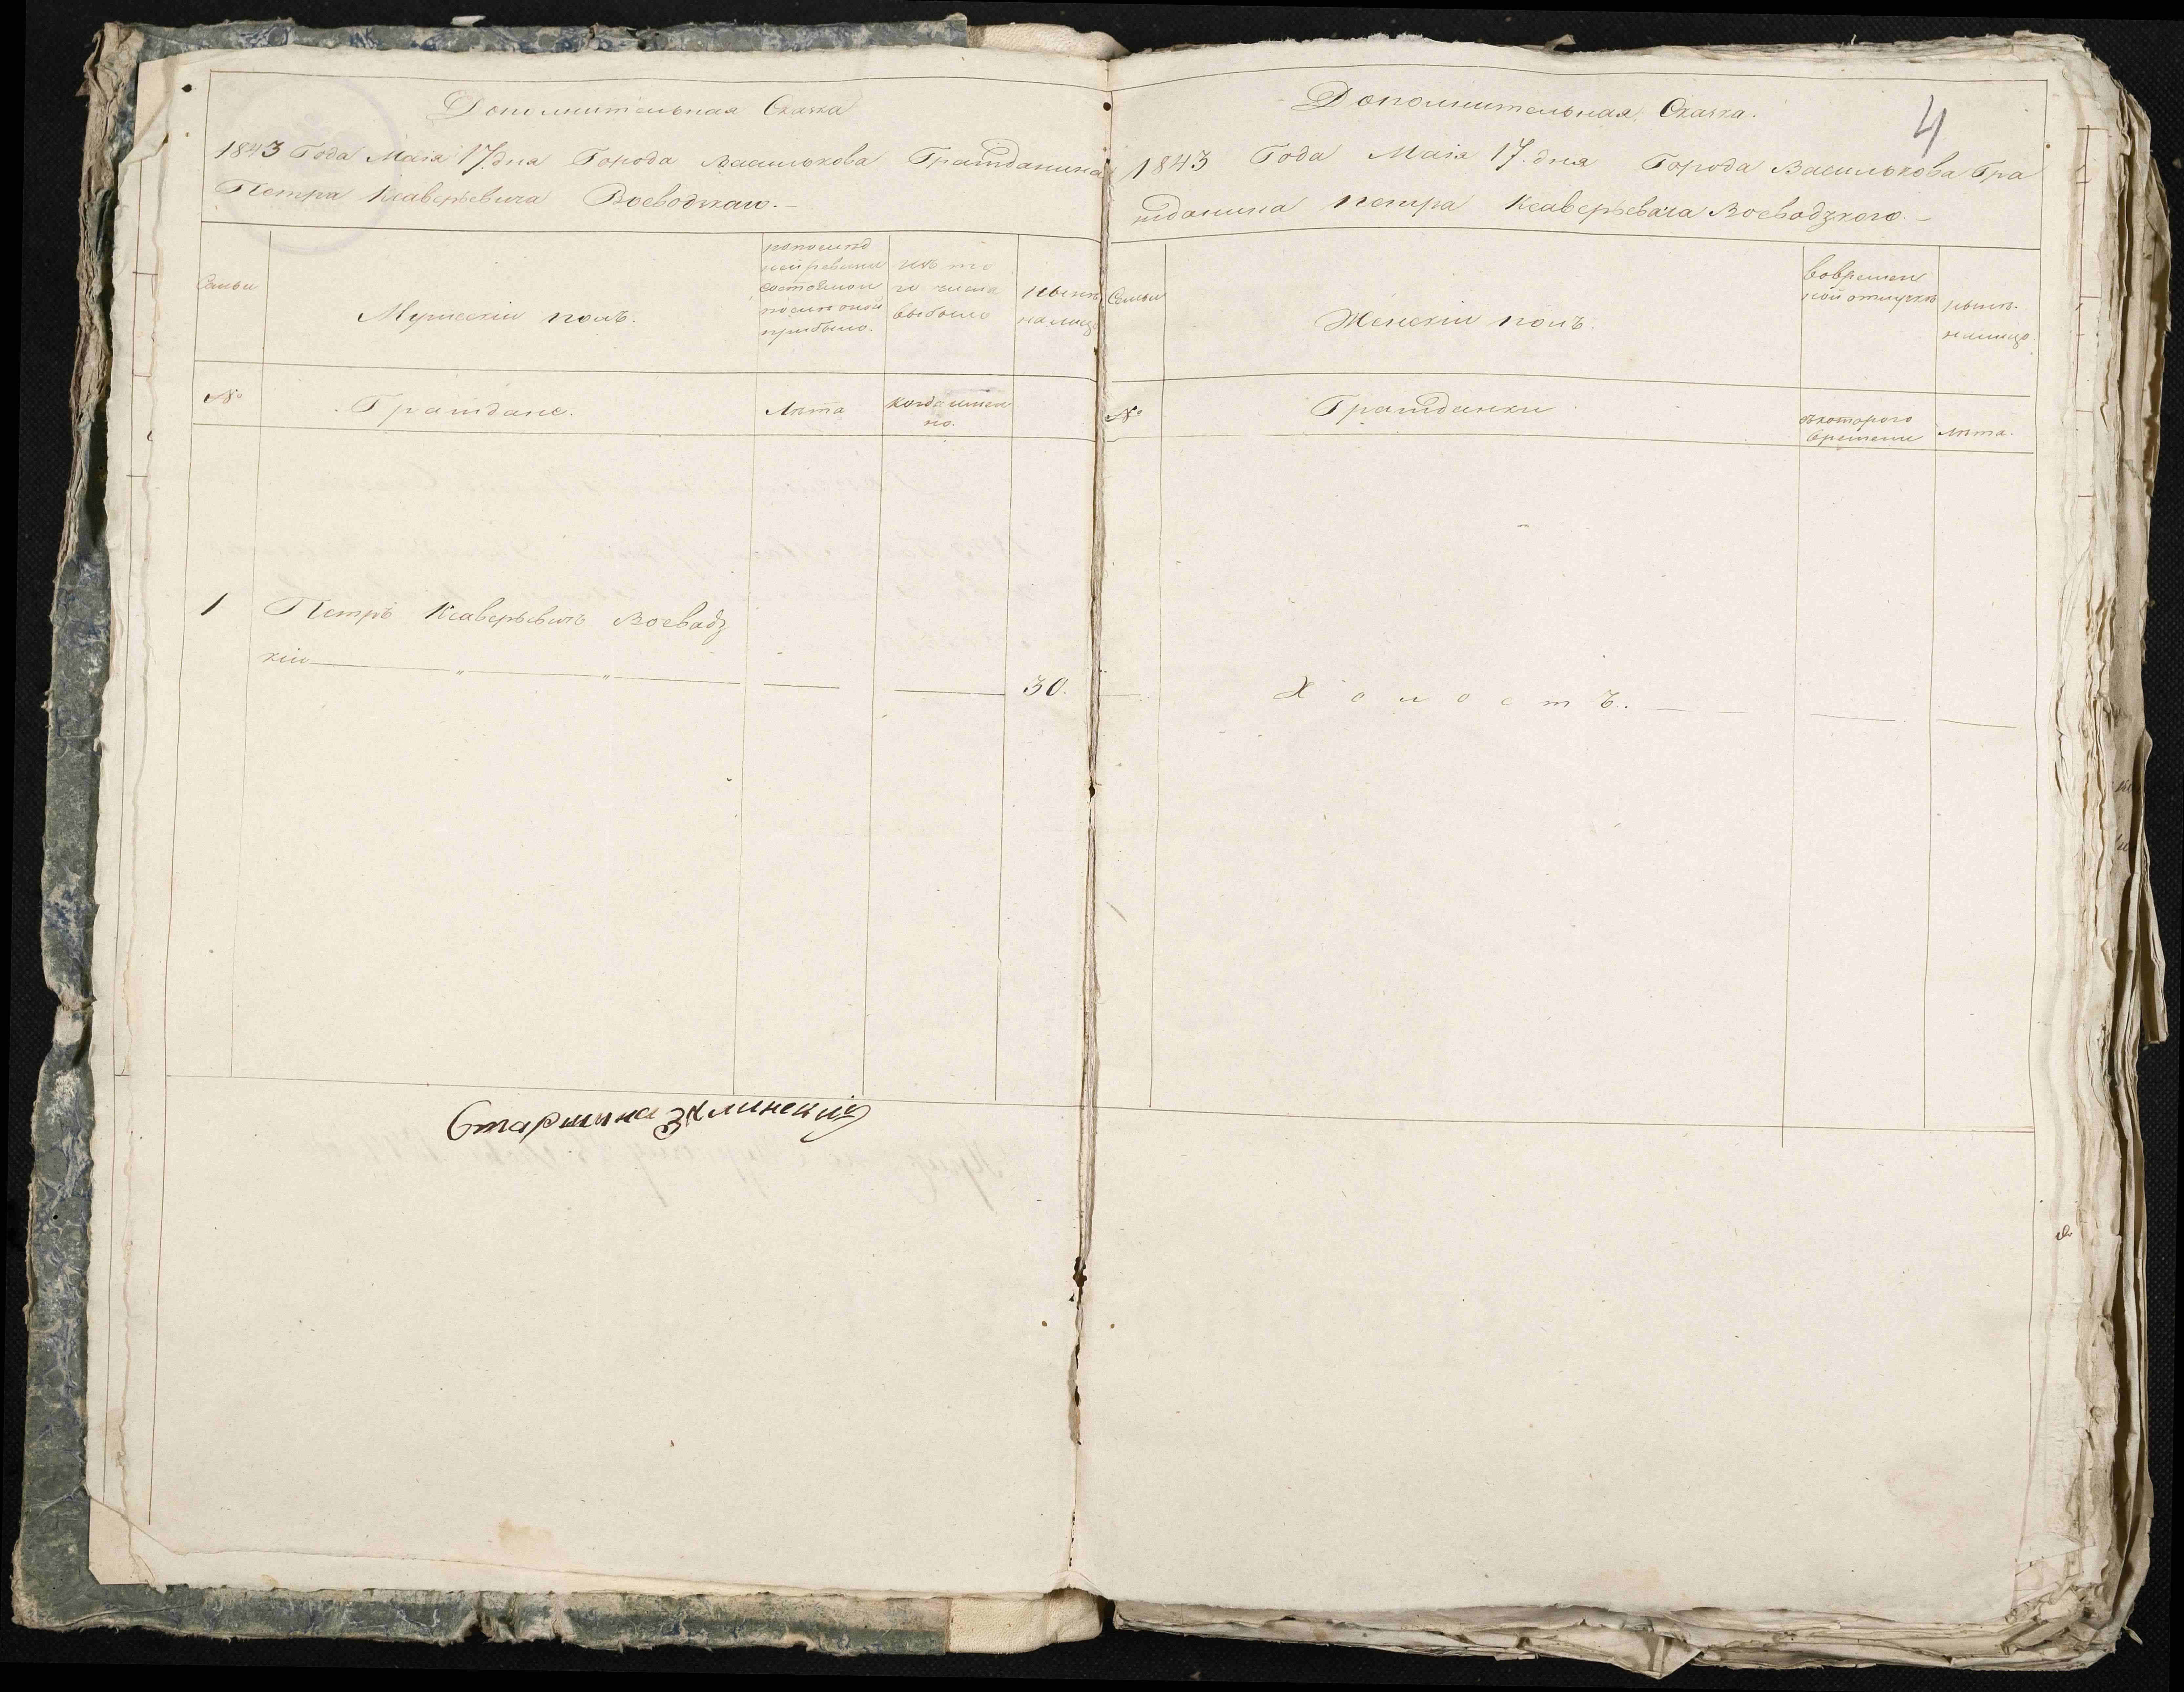 Дополнительная Сказка
1843 Года Маія 17. дня Города Василькова Гражданина
Петра Ксаверьевича Воеводзкаго. –
Семьи
Мужескій полъ.
по послѣд
ней ревизіи
состояло и
послѣ оной
прибыло.
изъ то
го числа
выбыло
нынѣ
на лицо
№
Граждане.
Лѣта
когда имен
но.
1
Петръ Ксаверьевичъ Воевадз
кій
30.
Старшина
4
Дополнительная Сказка.
1843 Года Маія 17. дня Города Василькова Гра
жданина Петра Ксаверьевича Воевадзкого. –
Семьи
Женскій полъ.
во времен
ной отлучкѣ
нынѣ.
на лицо.
№
Гражданки
съ котораго
времени
Лѣта.
Холостъ.